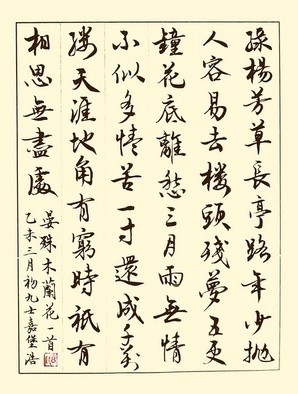 綠楊芳草長亭路年少拋
人容易去樓頭殘夢五更
鐘花底離愁三月雨無情
不似多情苦一寸還成千萬
縷天涯地角有窮時祇有
相思無盡處
晏殊木蘭花一首
乙未三月初九士嘉堡浩